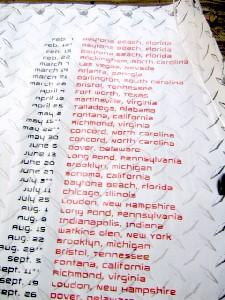 feb. daytona beach, florida
feb. daytona beach, florida
feb. daytona beach, florida
feb. rockingham, north carolina
march 7 las vegas, nevada
march 14 atlanta, georgia
march 21 darlington, south carolina
march 28 bristol, tennessee
april 4 fort worth, texas
april 18 martinsville, virginia
april 25 talladega, alabama
may 2 fontana, california
may 15** richmond, virginia
may 22** concord, north carolina
may 30 concord, north carolina
june 6 dover, delaware
june 13 long pond, pennsylvania
june 20 brooklyn, michigan
june 27 sonoma, california
july 3 daytona beach, florida
july 11 chicago, illinois
july 25 loudon, new hampshire
aug. 1 long pond, pennsylvania
aug. 8 indianapolis, indiana
aug. 15 watkins glen, new york
aug. 22 brooklyn, michigan
aug. 28** bristol, tennessee
sept. 5 fontana, california
sept. 11** richmond, virginia
sept. 19 loudon, new hampshire
26 dover, delaware